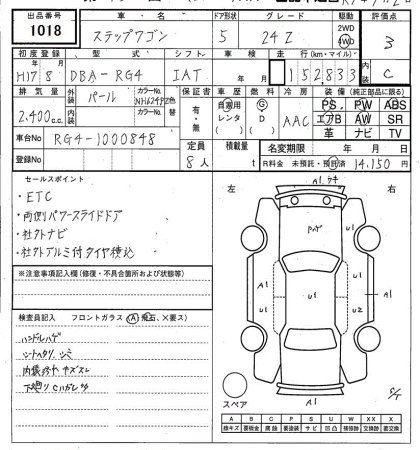 出品番号 車名 ドア形状 グレード 駆動 評価点
1018 ステップワゴン 5 24Z 2WD 4WD 3
初度登録 型式 シフト 車検 走行(km・マイル) 内装
H17 8 DBA-RG4 IAT 年 月 152,833 C
排気量 外装 カラーNo. 保証書 車歴 燃料 冷房 装備(純正部品に限る)
2,400cc パール NH624P 色替 有・無 自家用 レンタ G D AAC PS PW ABS
内装 カラーNo. エアB AW SR
革 ナビ TV
車台No RG4-1000848 定員 積載量 名変期限 年 月 日
登録No 8人 t R料金 未預託・預託済 14,150円
セールスポイント
・ETC
・両側パワースライドドア
・社外ナビ
・社外アルミ付タイヤ積込
※注意事項記入欄(修復・不具合箇所および状態等)
検査員記入 フロントガラス(A)飛石、×要ス)
ハンドルハゲ
シートヘタリ、シミ
内装
左 右
A1 キ
U1
A1 U1 U1 U2
A1
スペア
A B C P S U W X XX
線キズ 要板金 腐蝕 要塗装 サビ 凹凸 補修跡 要交換 交換済